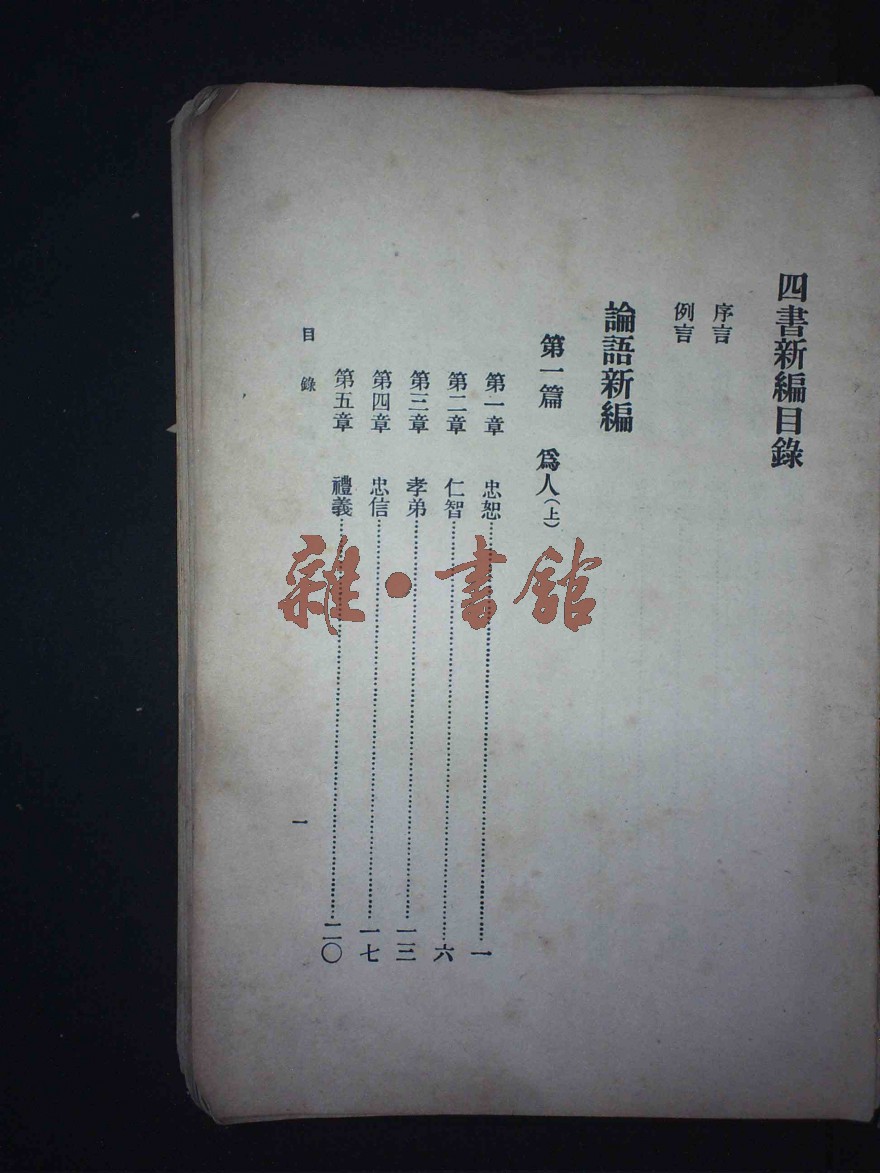 四書新編目錄
序言
例言
論語新編
第一篇　爲人(上)
第一章　忠恕……一
第二章　仁智……六
第三章　孝弟……一三
第四章　忠信……一七
第五章　禮義……二〇
目錄
一
雜·書館